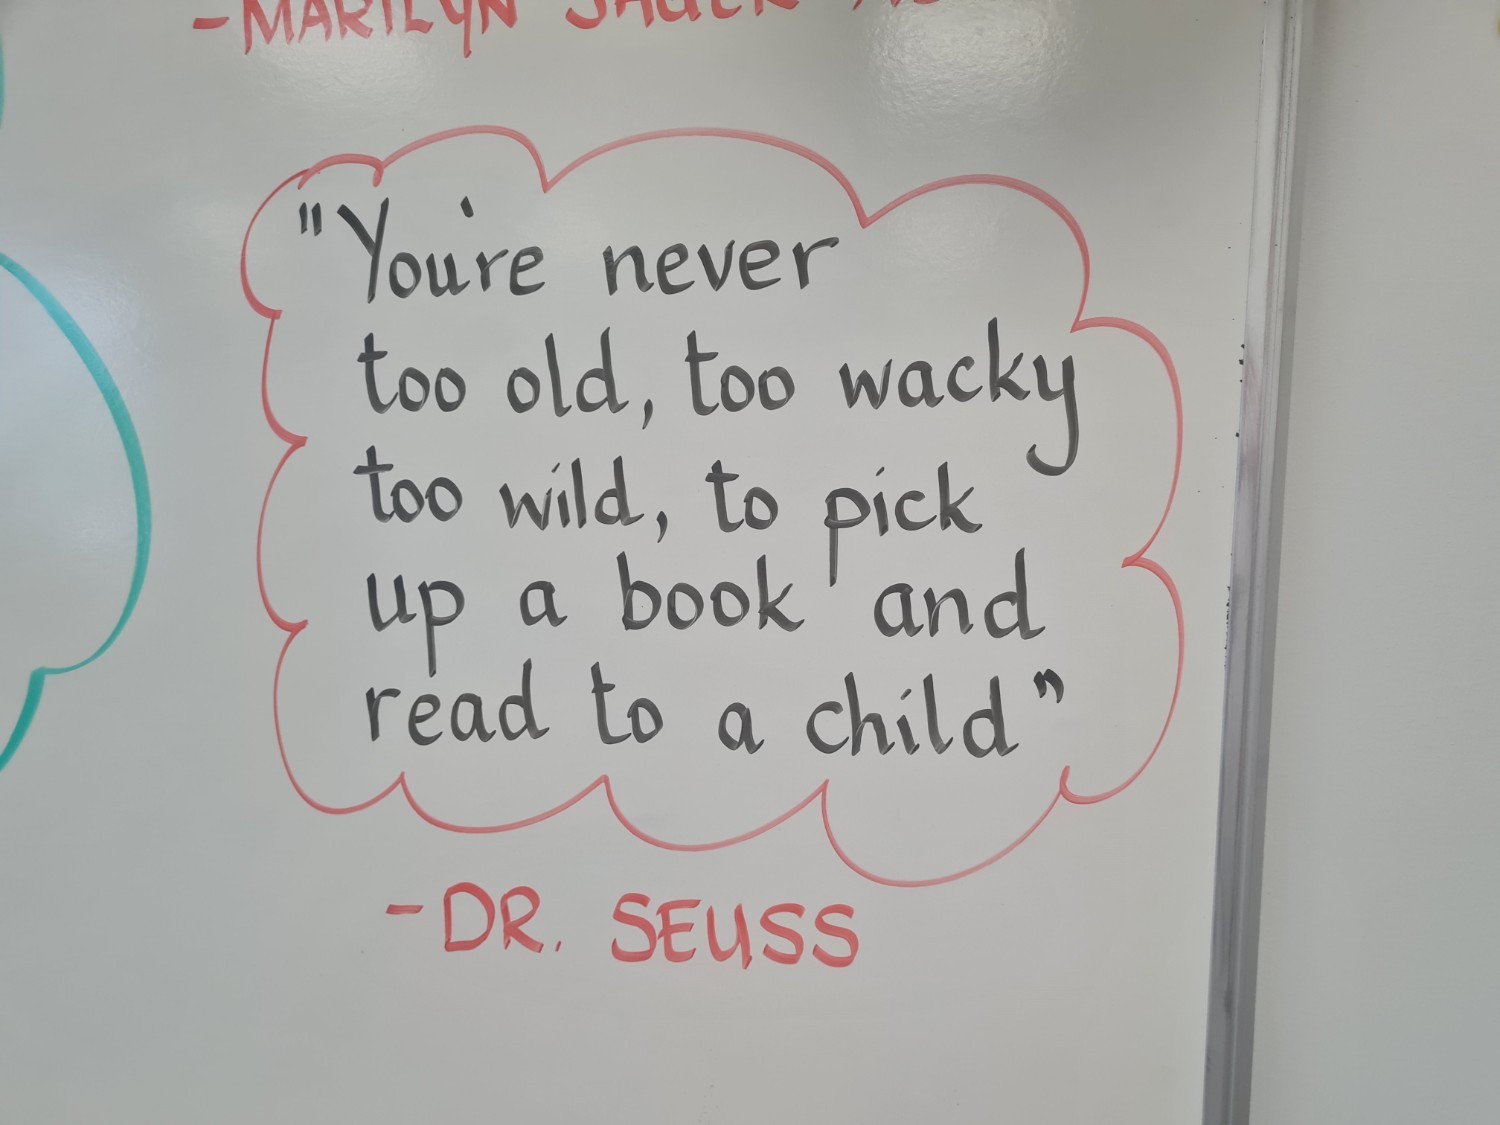 -MARILYN JAGER
"You're never
too old, too wacky
too wild, to pick
up a book and
read to a child"
-DR. SEUSS